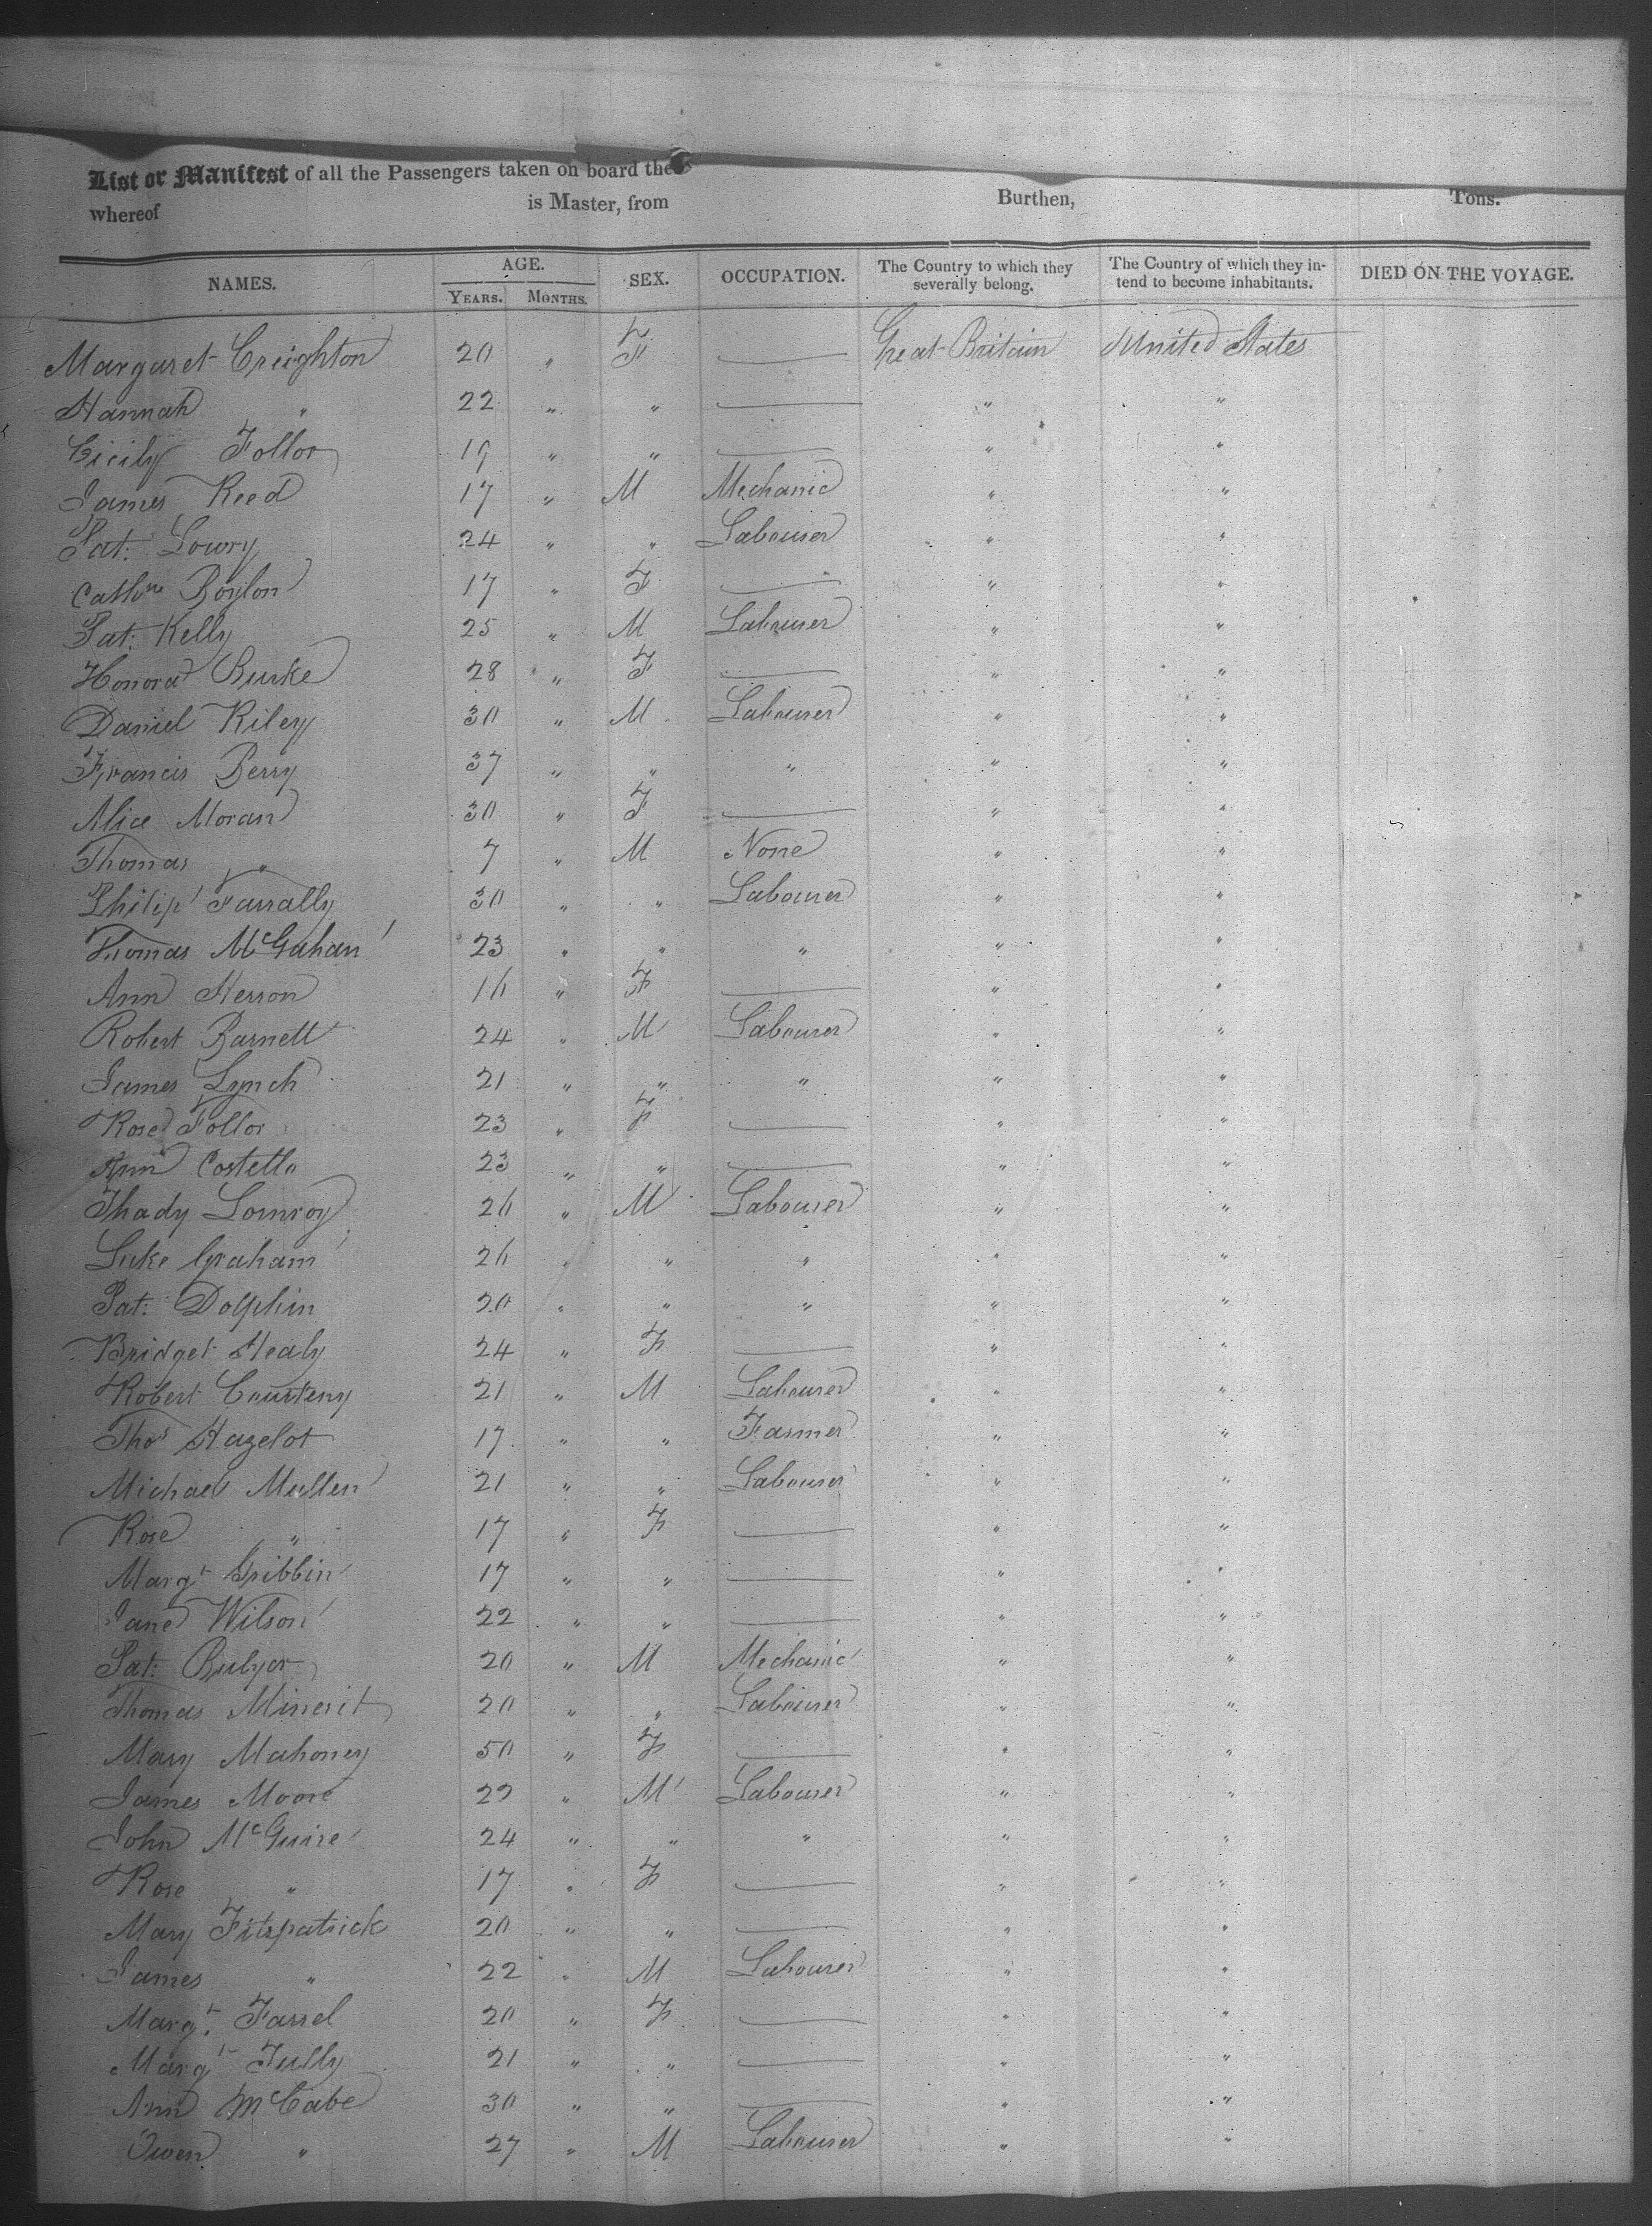 List or Manifest of all the Passengers taken on board the Burthen, Tons.
whereof is Master, from
NAMES. AGE. YEARS. MONTHS. SEX. OCCUPATION. The Country to which they severally belong. The Country of which they intend to become inhabitants. DIED ON THE VOYAGE.
Margaret Creighton 20 " F — Great Britain United States
Hannah " 22 " " — " "
Cicily Follor 19 " " — " "
James Reed 17 " M Mechanic " "
Pat: Lowry 24 " " Labourer " "
Cathne Boylon 17 " F — " "
Pat: Kelly 25 " M Labourer " "
Honora Burke 28 " F — " "
Daniel Riley 30 " M Labourer " "
Francis Berry 37 " " " " "
Alice Moran 30 " F — " "
Thomas " 7 " M None " "
Philip Farrally 30 " " Labourer " "
Thomas McGahan 23 " " " " "
Ann Herron 16 " F — " "
Robert Barnett 24 " M Labourer " "
James Lynch 21 " " " " "
Rose Follor 23 " F — " "
Ann Costello 23 " " — " "
Thady Lomroy 26 " M Labourer " "
Luke Graham 26 " " " " "
Pat: Dolphin 20 " " " " "
Bridget Healy 24 " F — " "
Robert Courteny 21 " M Labourer " "
Thos Hazelot 17 " " Farmer " "
Michael Mullen 21 " " Labourer " "
Rose " 17 " F — " "
Margt Gribbin 17 " " — " "
Jane Wilson 22 " " — " "
Pat: 20 " M Mechanic " "
Thomas Minerit 20 " " Labourer " "
Mary Mahoney 50 " F — " "
James Moore 22 " M Labourer " "
John McGuire 24 " " " " "
Rose " 17 " F — " "
Mary Fitspatrick 20 " " — " "
James " 22 " M Labourer " "
Margt. Farrel 20 " F — " "
Margt Tully 21 " " — " "
Ann McCabe 30 " " — " "
Owen " 27 " M Labourer " "